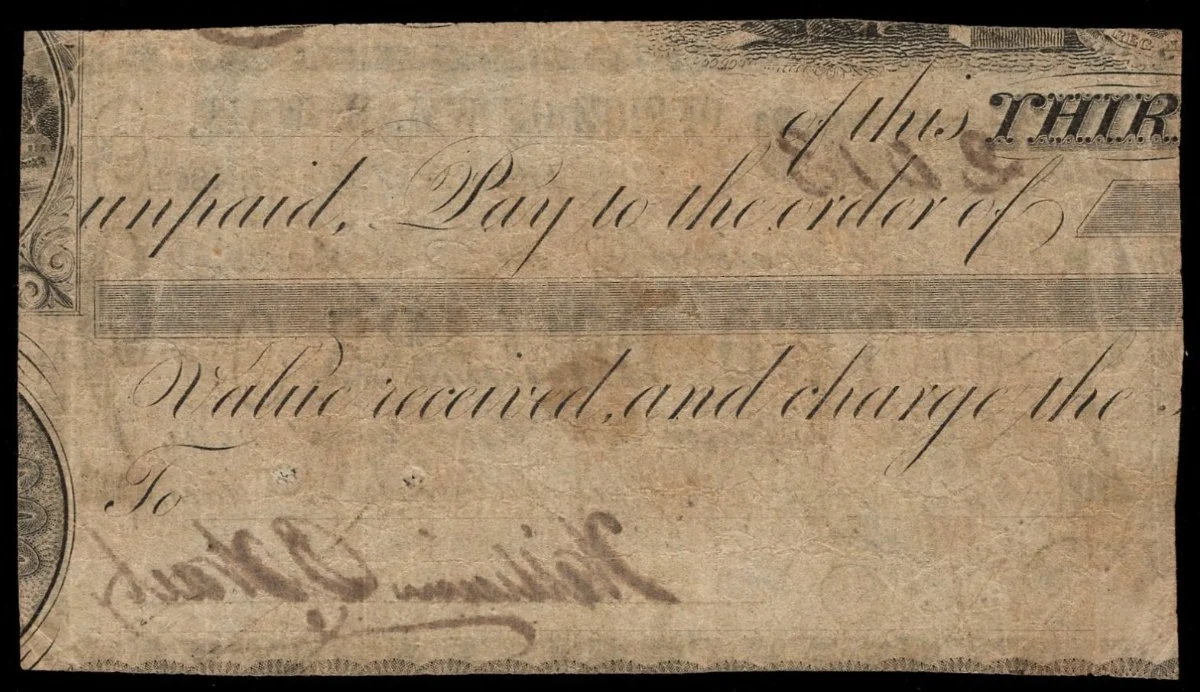 of this THIR
unpaid, Pay to the order of
Value received, and charge the
To
William